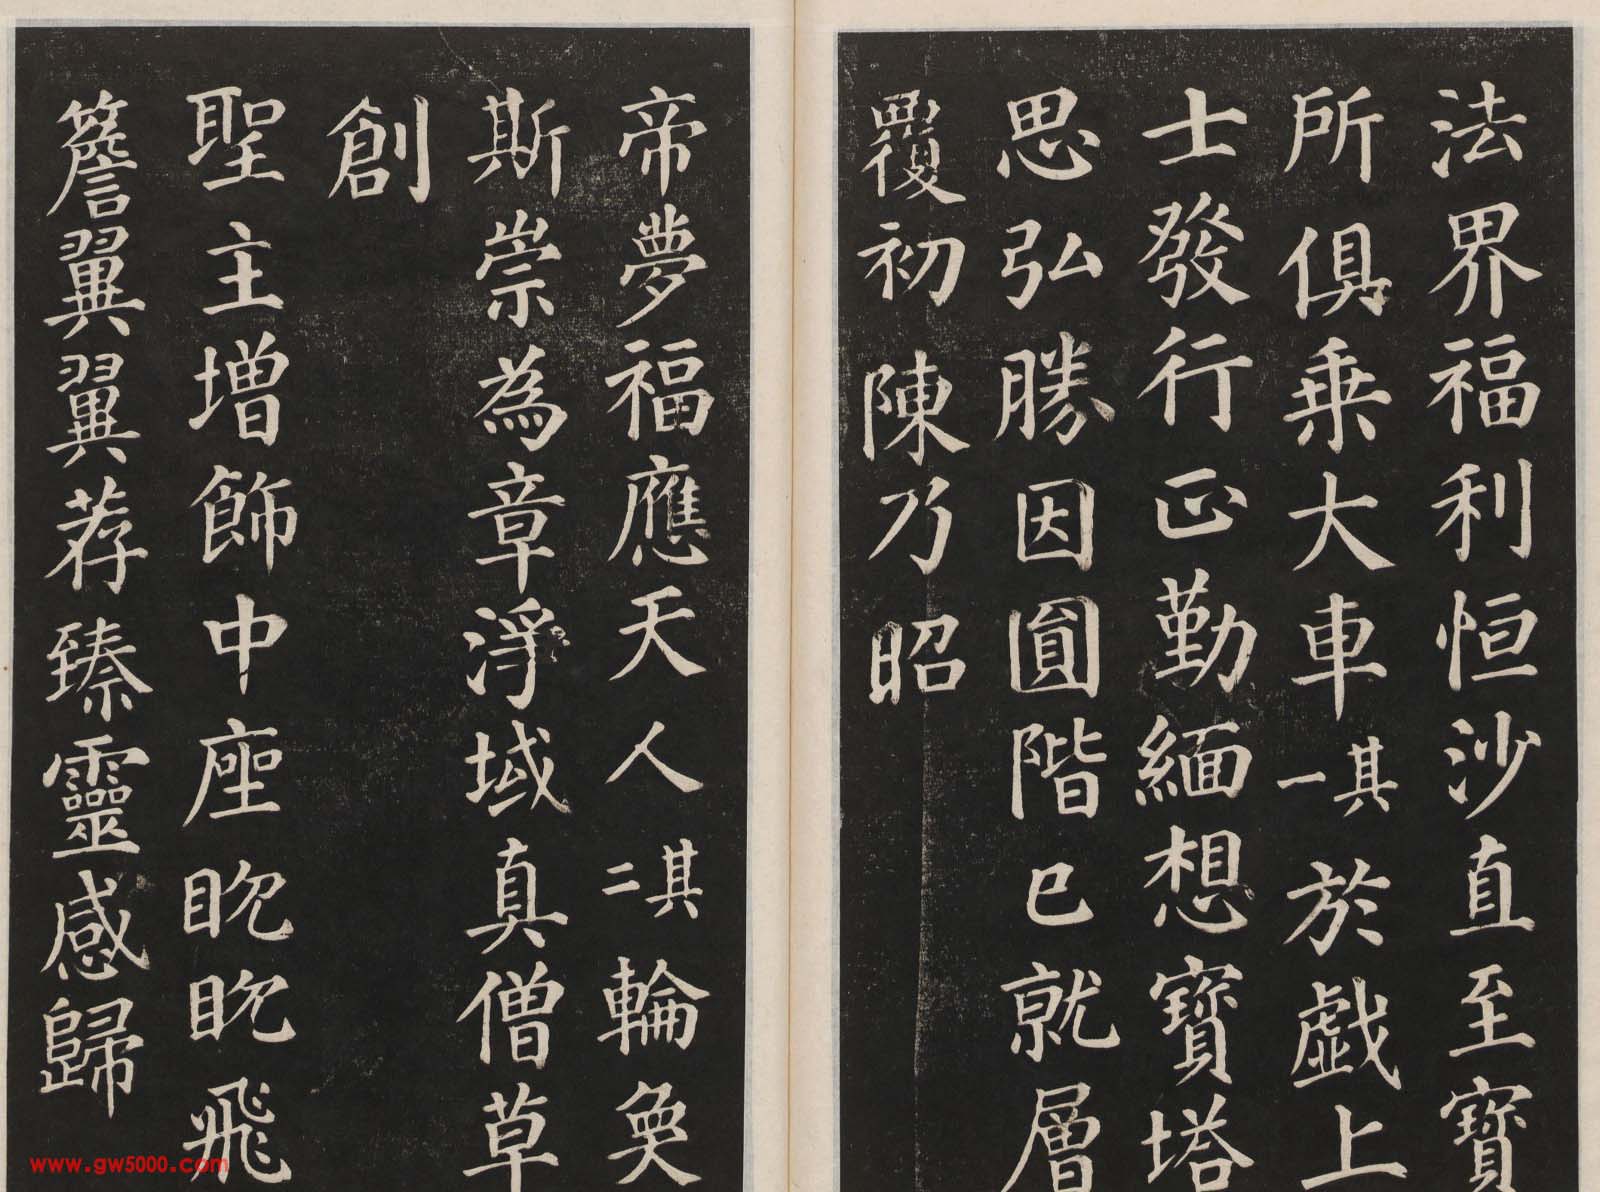 法界福利恒沙直至寶
所俱乗大車其一於戯上
士發行正勤緬想寶塔
思弘勝因圓階已就層
覆初陳乃昭
帝夢福應天人其二輪奐
斯崇為章淨域真僧草
創
聖主增飾中座眈眈飛
簷翼翼荐臻靈感歸
www.gw5000.com